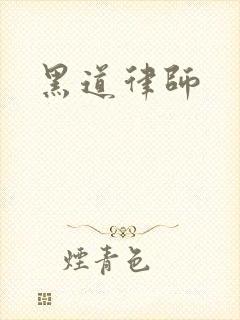 黑道律師
煙青色